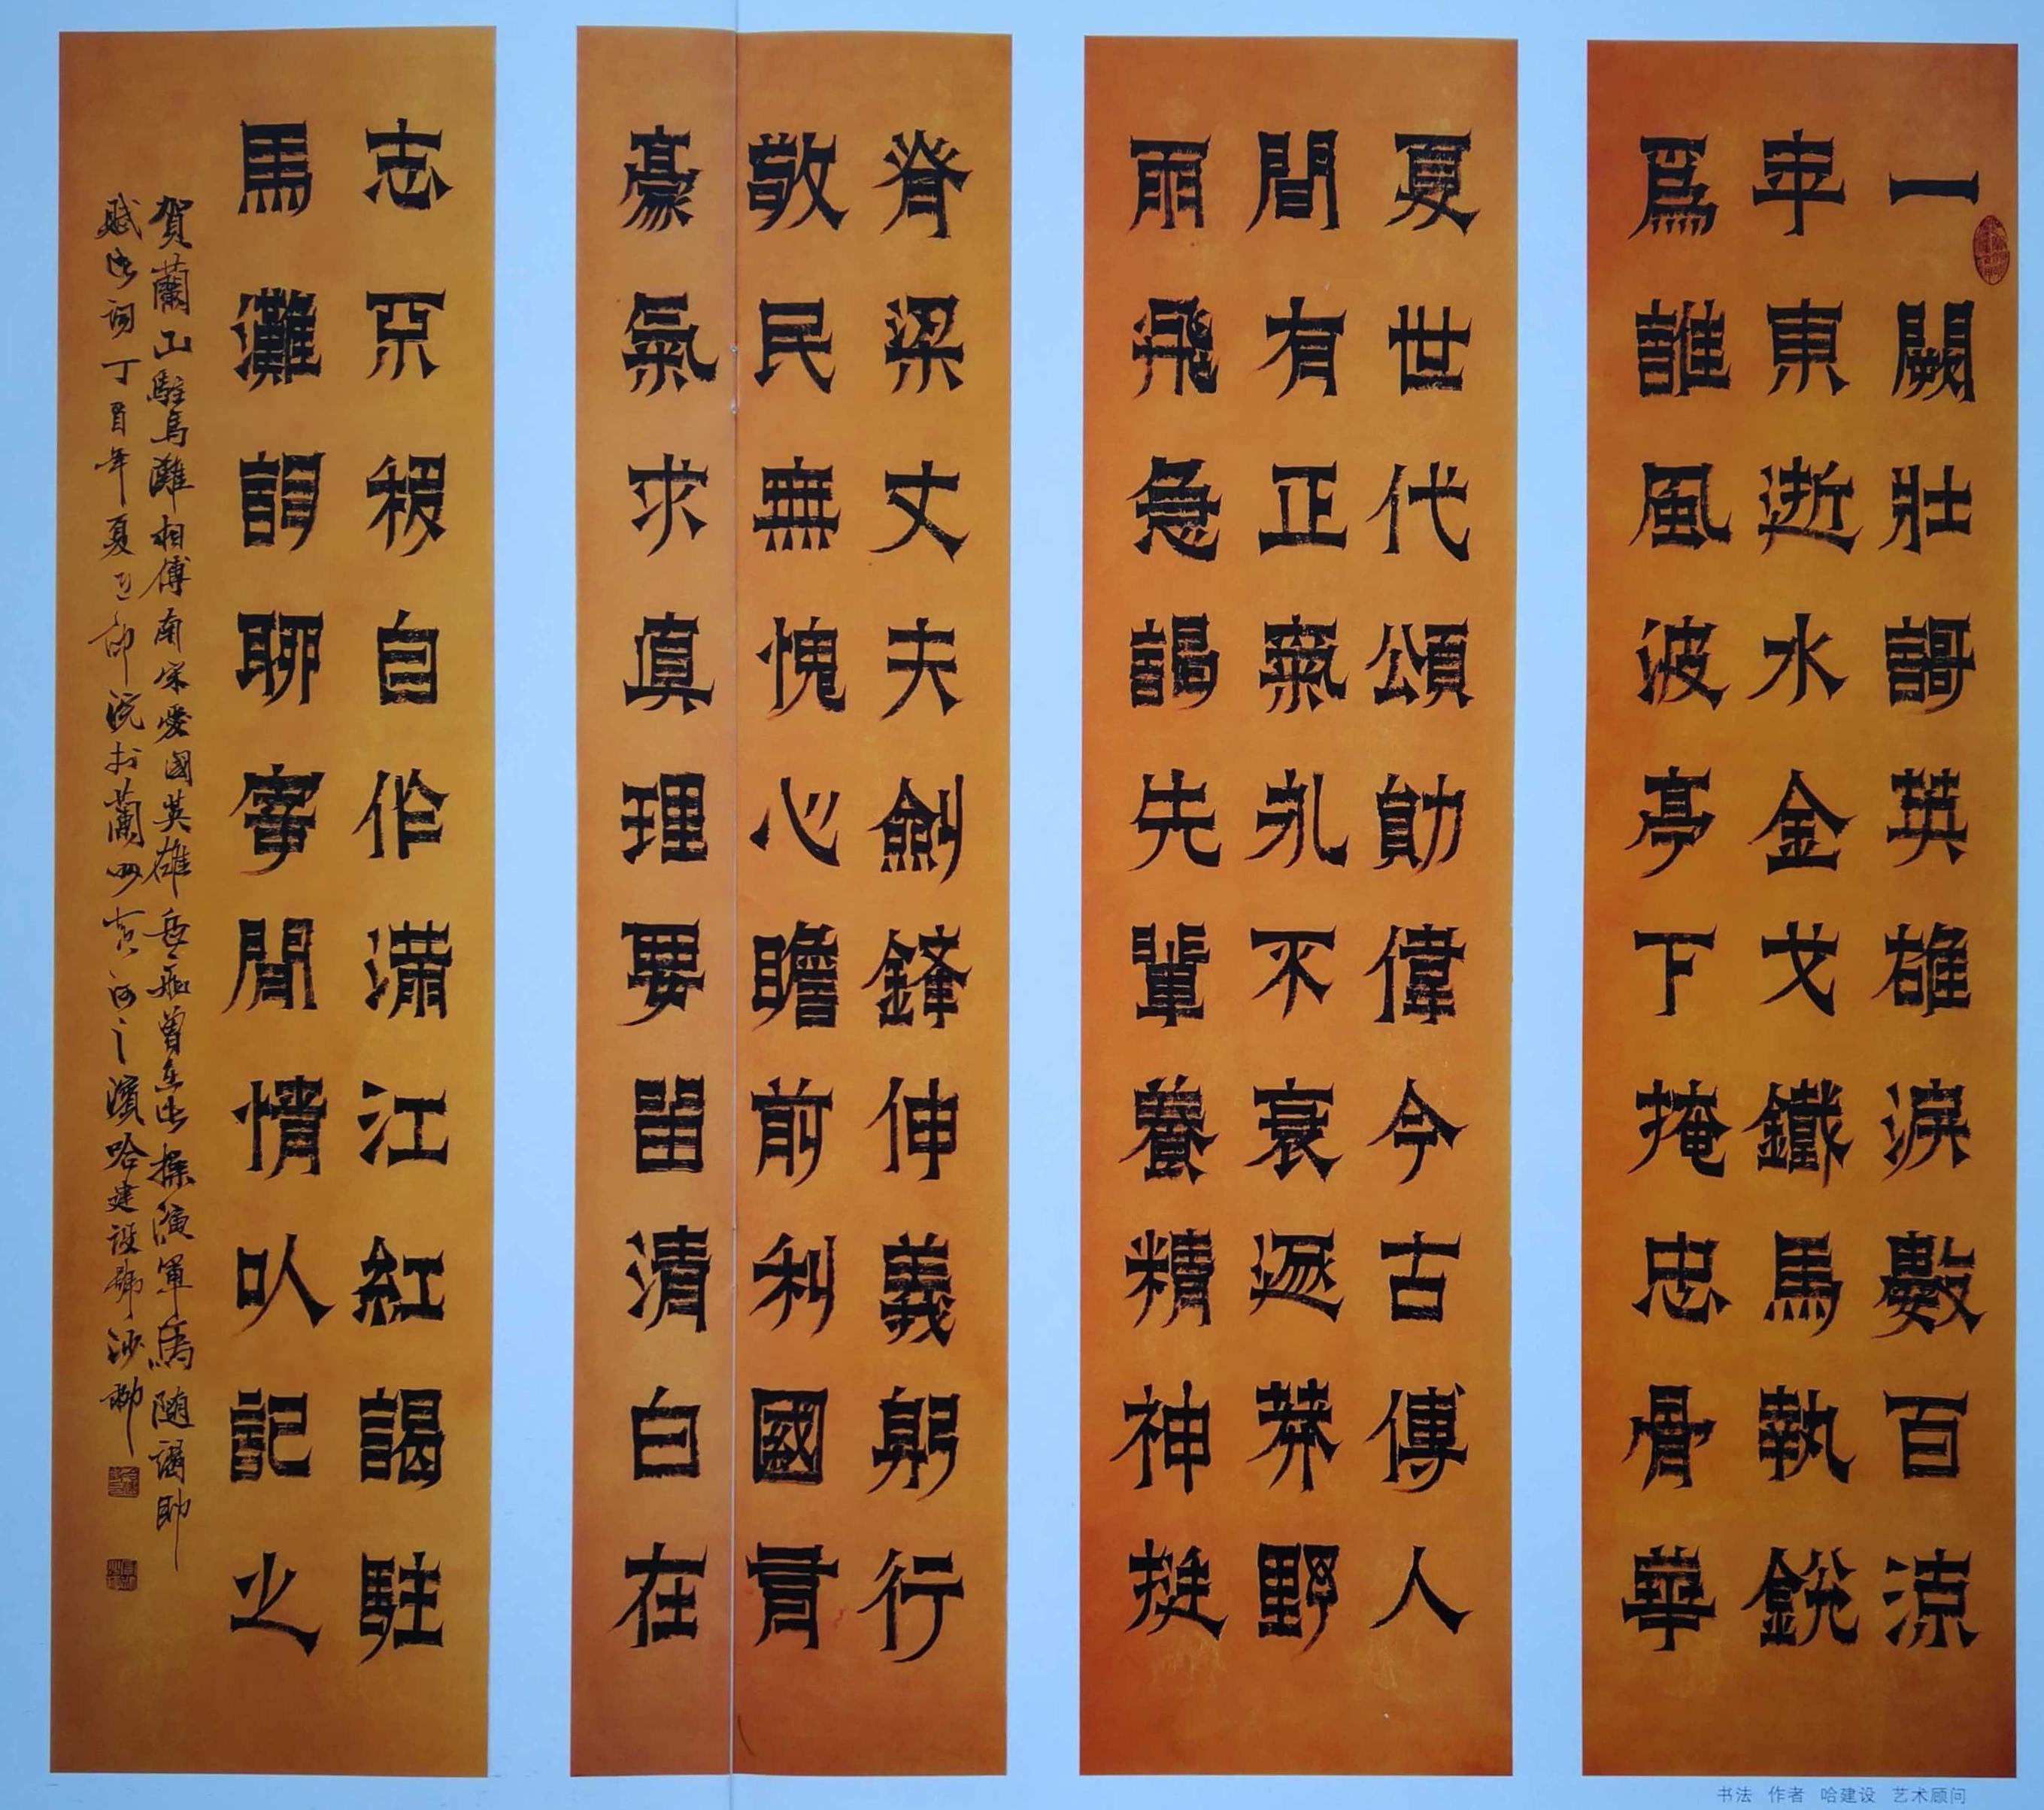 一闕壯謌英雄淚數百涼
年東逝水金戈鐵馬執銳
為誰風波亭下掩忠骨華
夏世代頌勛偉今古傳人
間有正氣永不衰遜莽野
雨飛急謁先輩養精神挺
脊梁丈夫劍鋒伸義躬行
敬民無愧心瞻前利國君
豪氣求真理要留清白在
志京稷自作滿江紅謁駐
馬灘調聊寄閒情以記之
賀蘭山駐馬灘相傳南宋愛國英雄岳飛曾在此操演軍馬隨謁即
賦此詞丁酉年夏於蘭州黃河之濱哈建設號沙柳
书法 作者 哈建设 艺术顾问